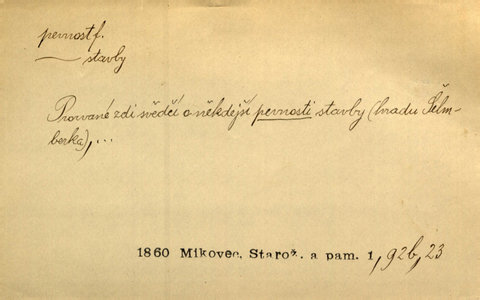 pevnost f.
— stavby
Prorvané zdi svědčí o někdejší pevnosti stavby (hradu Šelm-
berka), ...
1860 Mikovec, Starož. a pam. 1, 92b, 23